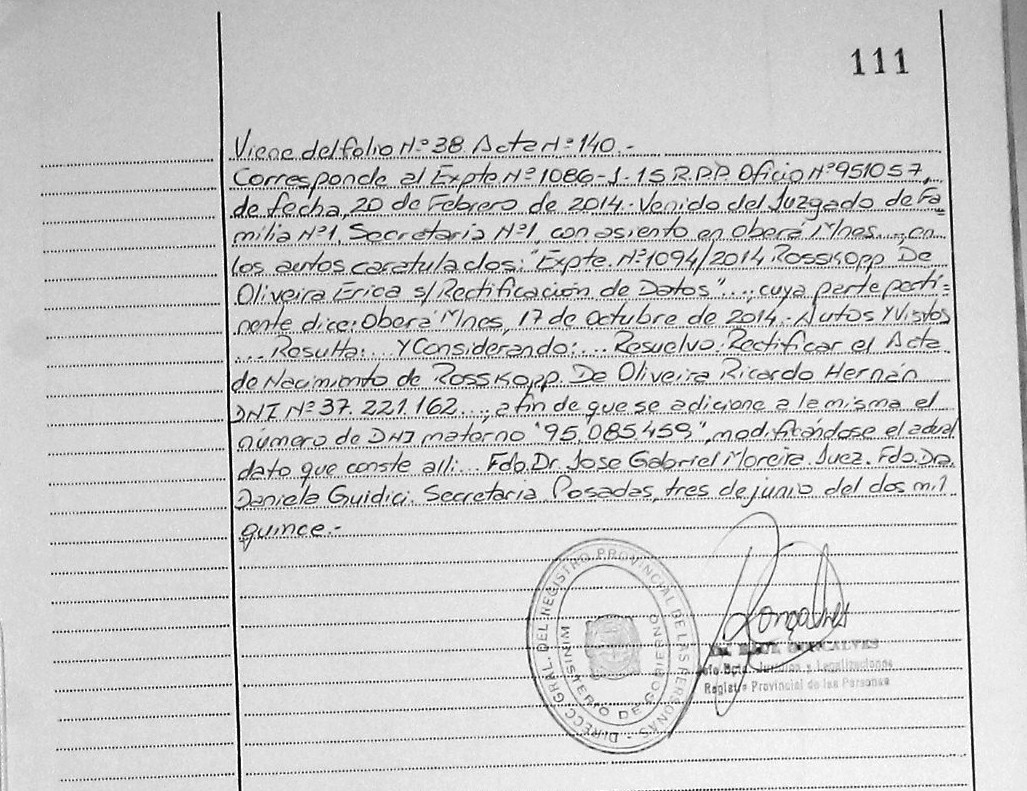 111
Viene del folio Nº 38. Acta Nº 140.-
Corresponde al Expte Nº 1086-J-15 R.P.P. Oficio Nº 951057,
de fecha, 20 de Febrero de 2014. Venido del Juzgado de Fa-
milia Nº1, Secretaria Nº1, con asiento en Oberá Mnes...., en
los autos caratulados: "Expte. Nº 1094/2014 Rosskopp De
Oliveira Erica s/ Rectificación de Datos"...., cuya parte perti-
nente dice: Oberá Mnes, 17 de Octubre de 2014. Autos Y Vistos
... Resulta:... Y Considerando:... Resuelvo: Rectificar el Acta
de Nacimiento de Rosskopp De Oliveira Ricardo Hernán
DNI Nº 37.221.162...., a fin de que se adicione a la misma el
número de DNI materno "95.085.459", modificándose el actual
dato que conste allí... Fdo. Dr. Jose Gabriel Moreira. Juez. Fdo. Dra.
Daniela Guidici. Secretaria Posadas, tres de junio del dos mil
quince.-
DIRECC. GRAL. DEL REGISTRO PROVINCIAL DE LAS PERSONAS
MINISTERIO DE GOBIERNO
Gonçalves
GONCALVES
Jefe Dpto. Jurídico y Legalizaciones
Registro Provincial de las Personas